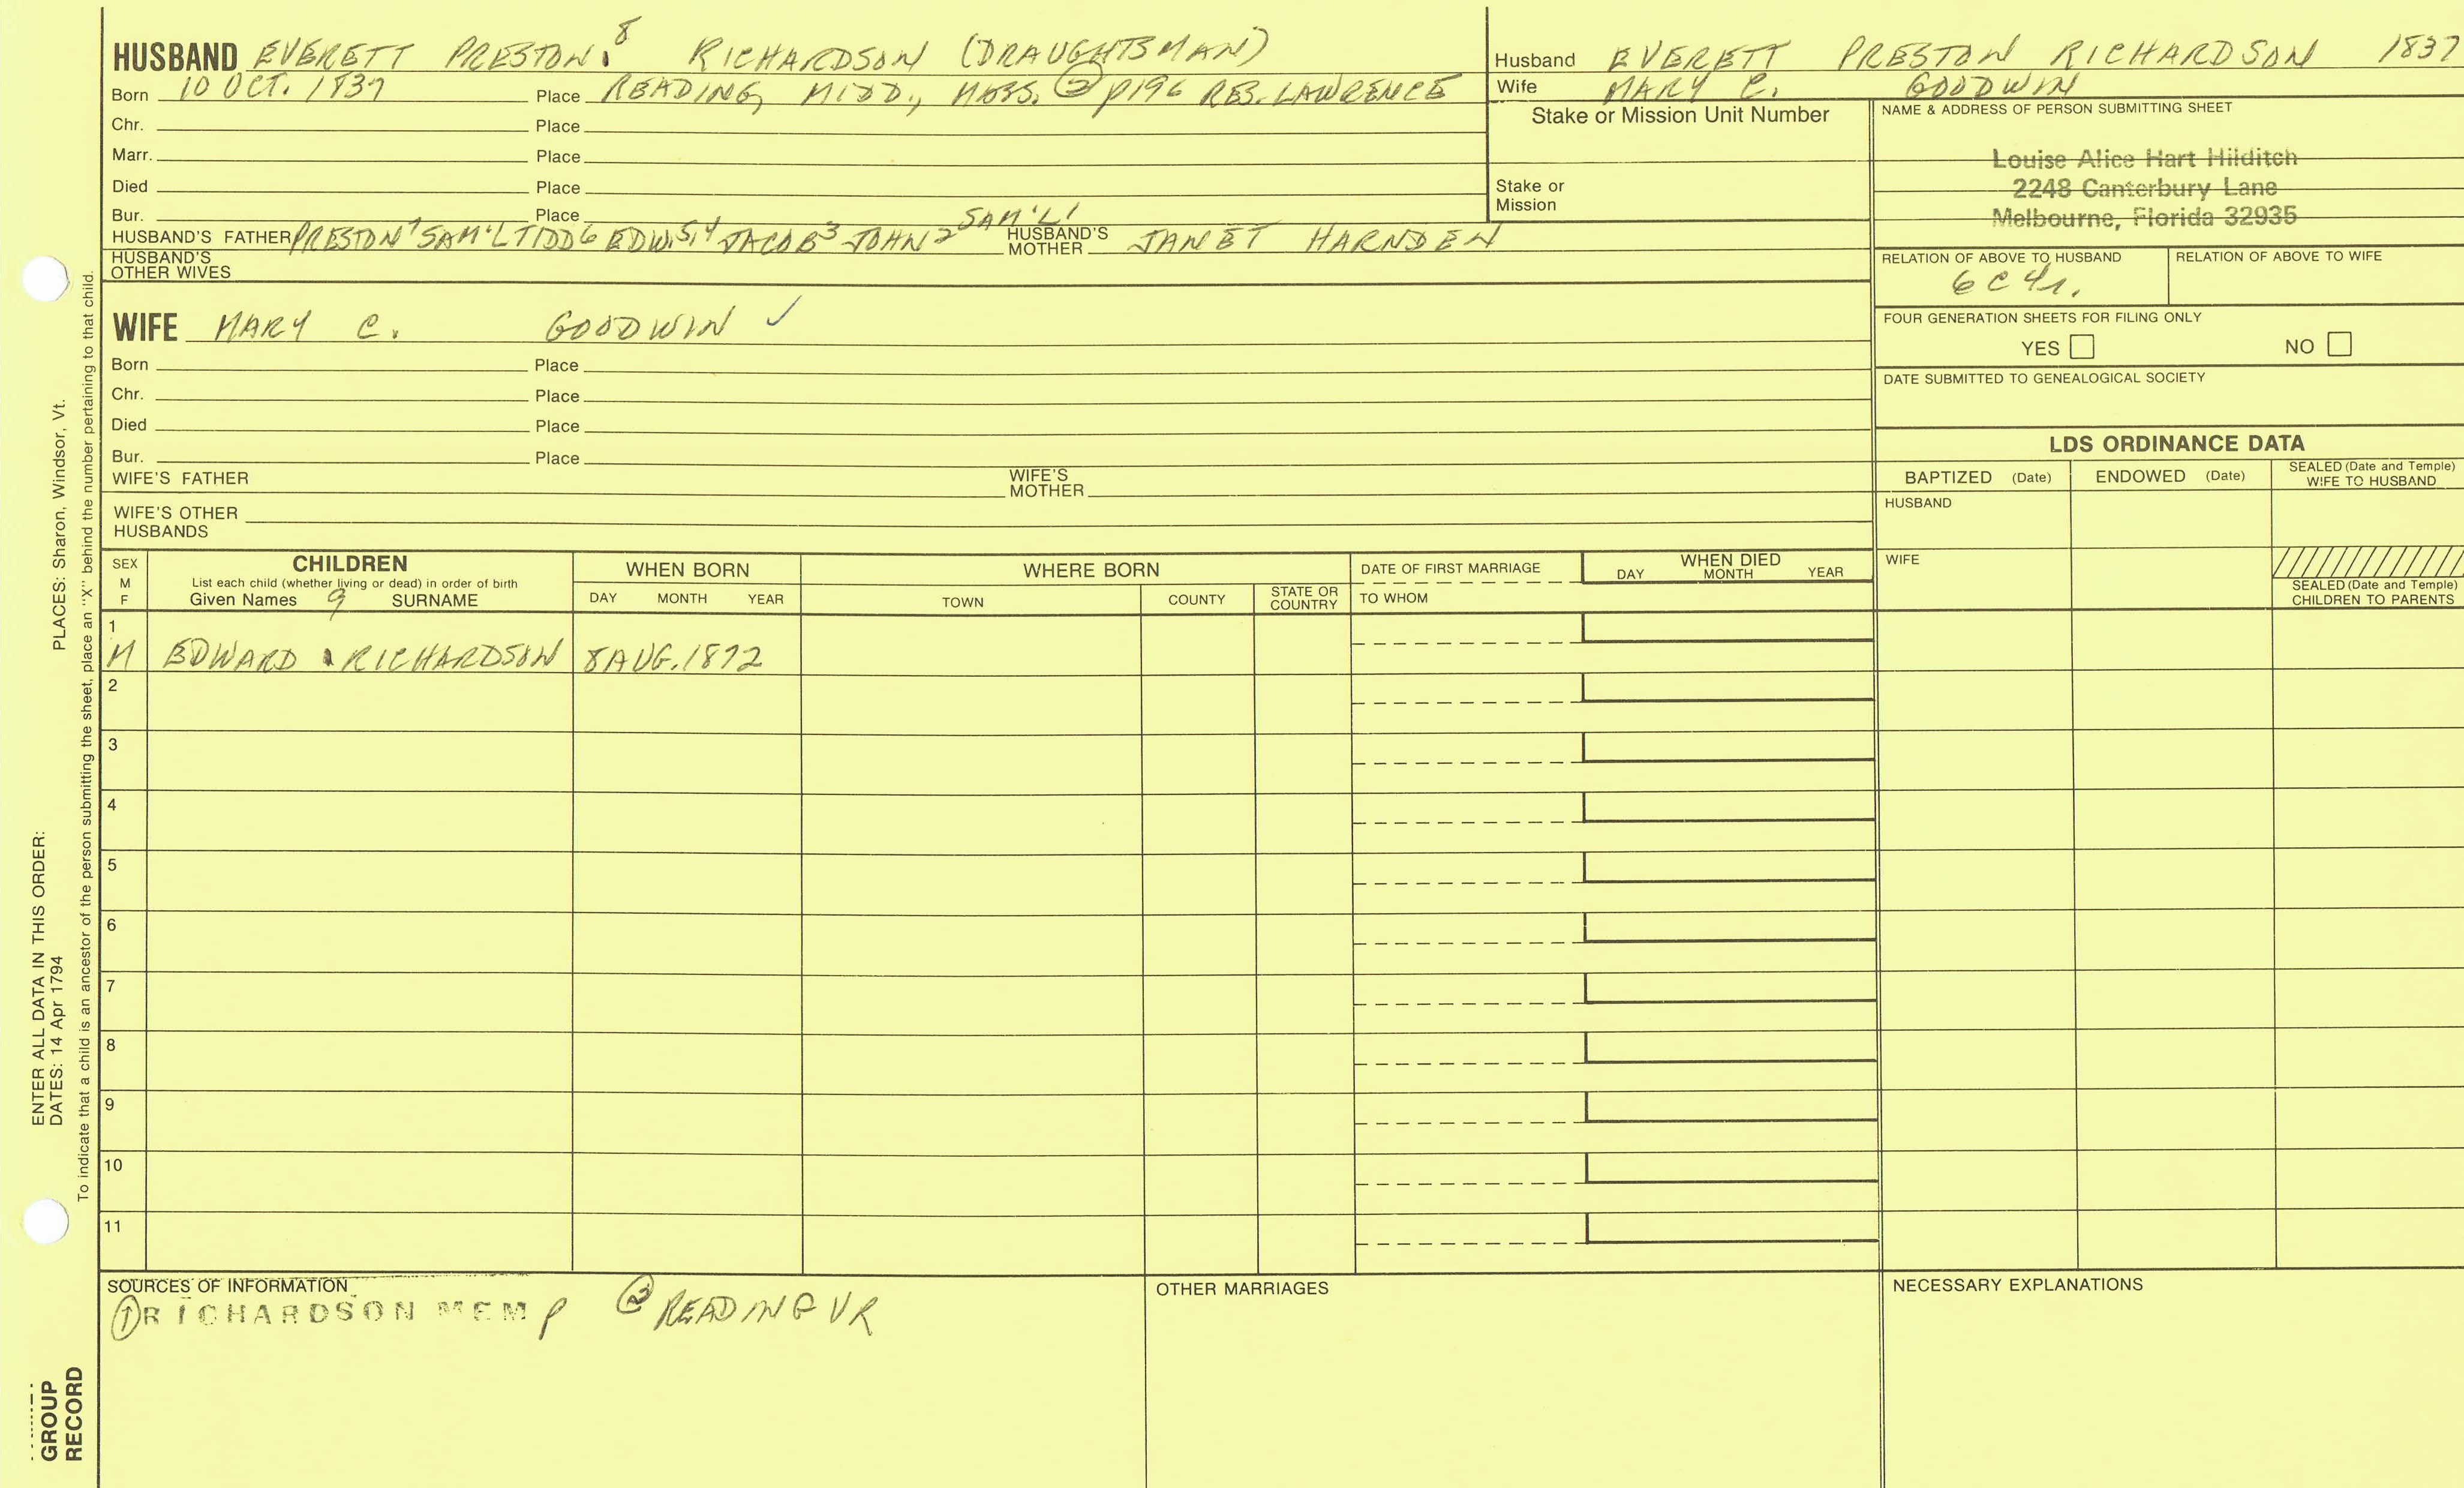 HUSBAND EVERETT PRESTON 8 RICHARDSON (DRAUGHTSMAN)
Born 10 OCT. 1837 Place READING, MIDD., MASS. ② p196 RES. LAWRENCE
Chr. Place
Marr. Place
Died Place
Bur. Place
HUSBAND'S FATHER PRESTON7 SAM'L TIDD6 EDW.5,4 JACOB3 JOHN2 SAM'L1 HUSBAND'S MOTHER JANET HARNDEN
HUSBAND'S OTHER WIVES
Husband EVERETT PRESTON RICHARDSON 1837
Wife MARY C. GOODWIN
Stake or Mission Unit Number
Stake or
Mission
NAME & ADDRESS OF PERSON SUBMITTING SHEET
Louise Alice Hart Hilditch
2248 Canterbury Lane
Melbourne, Florida 32935
RELATION OF ABOVE TO HUSBAND RELATION OF ABOVE TO WIFE
6C4r.
FOUR GENERATION SHEETS FOR FILING ONLY
YES NO
DATE SUBMITTED TO GENEALOGICAL SOCIETY
WIFE MARY C. GOODWIN ✓
Born Place
Chr. Place
Died Place
Bur. Place
WIFE'S FATHER WIFE'S MOTHER
WIFE'S OTHER
HUSBANDS
LDS ORDINANCE DATA
BAPTIZED (Date) ENDOWED (Date) SEALED (Date and Temple) WIFE TO HUSBAND
HUSBAND
WIFE
SEALED (Date and Temple)
CHILDREN TO PARENTS
SEX
M
F
CHILDREN
List each child (whether living or dead) in order of birth
Given Names 9 SURNAME
WHEN BORN
DAY MONTH YEAR
WHERE BORN
TOWN COUNTY STATE OR COUNTRY
DATE OF FIRST MARRIAGE
TO WHOM
WHEN DIED
DAY MONTH YEAR
1
M EDWARD RICHARDSON 8 AUG. 1872
2
3
4
5
6
7
8
9
10
11
SOURCES OF INFORMATION
① RICHARDSON MEM p ② READING VR
OTHER MARRIAGES
NECESSARY EXPLANATIONS
ENTER ALL DATA IN THIS ORDER:
DATES: 14 Apr 1794 PLACES: Sharon, Windsor, Vt.
To indicate that a child is an ancestor of the person submitting the sheet, place an "X" behind the number pertaining to that child.
GROUP
RECORD